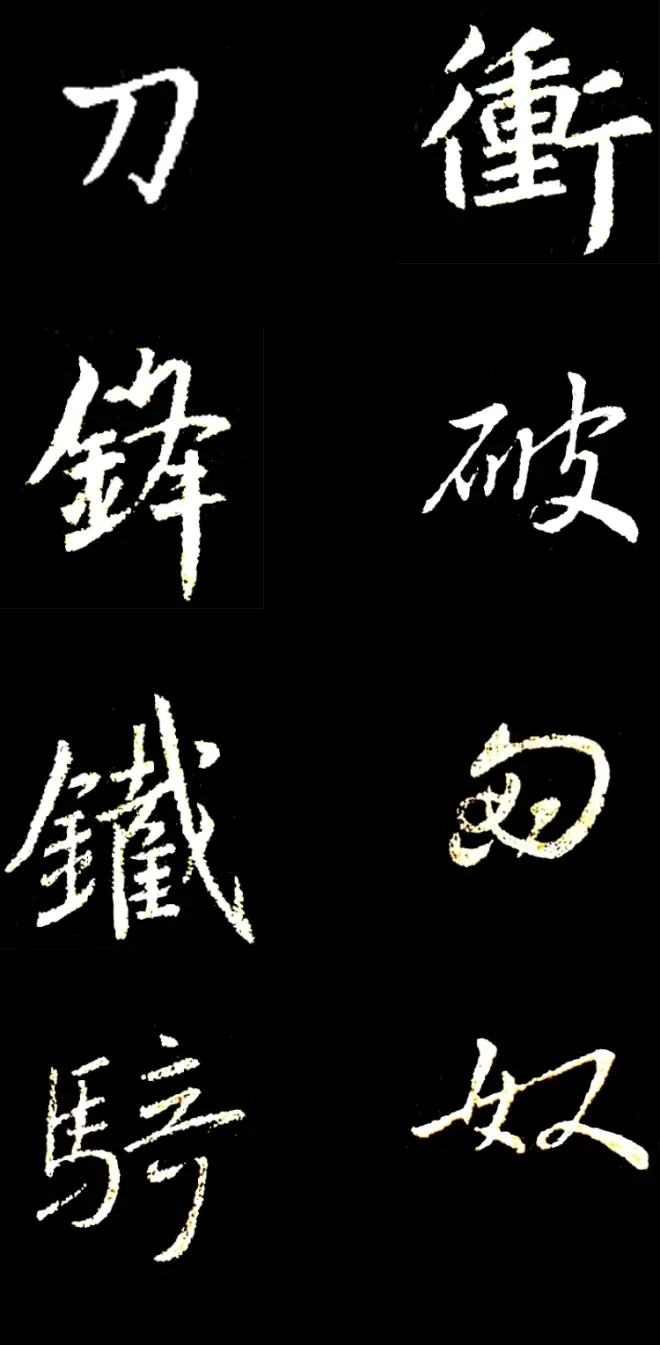 衝破匈奴
刀鋒鐵騎